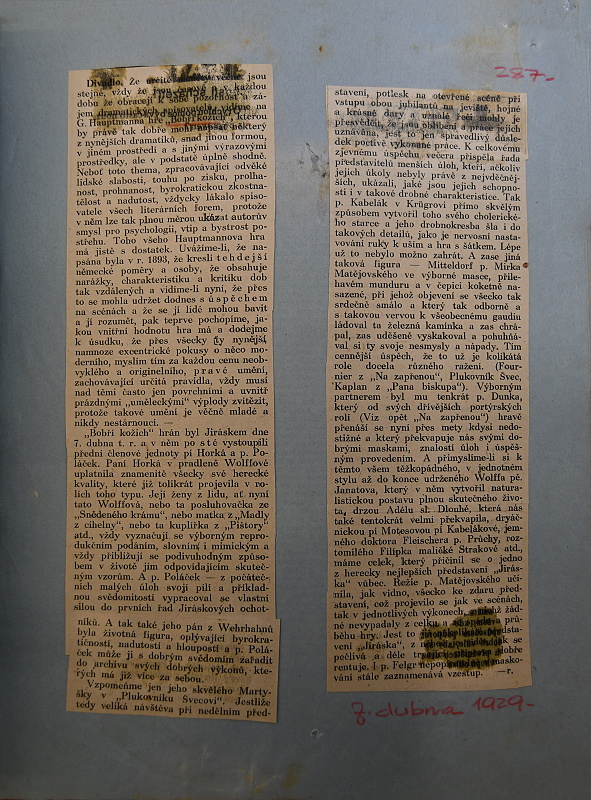 287.-
Divadlo. Že určité
stejné, vždy že jsou v každou
dobu že obracejí k sobě pozornost a zá-
jem
G. Hauptmanna hře „Bobří kožich", kterou
by právě tak dobře mohl napsat některý
z nynějších dramatiků, snad jinou formou,
v jiném prostředí a s jinými výrazovými
prostředky, ale v podstatě úplně shodně.
Neboť toto thema, zpracovávající odvěké
lidské slabosti, touhu po zisku, prolha-
nost, prohnanost, byrokratickou zkostna-
tělost a nadutost, vždycky lákalo spiso-
vatele všech literárních forem, protože
v něm lze tak plnou měrou ukázat autorův
smysl pro psychologii, vtip a bystrost po-
střehu. Toho všeho Hauptmannova hra
má jistě s dostatek. Uvážíme-li, že na-
psána byla v r. 1893, že kreslí tehdejší
německé poměry a osoby, že obsahuje
narážky, charakteristiku a kritiku dob
tak vzdálených a vidíme-li nyní, že přes
to se mohla udržet dodnes s úspěchem
na scénách a že se jí lidé mohou bavit
a jí rozumět, pak teprve pochopíme, ja-
kou vnitřní hodnotu hra má a dodejme
k úsudku, že přes všecky ty nynější,
namnoze excentrické pokusy o něco mo-
derního, myslím tím za každou cenu neob-
vyklého a originelního, pravé umění,
zachovávající určitá pravidla, vždy musí
nad těmi často jen povrchními a uvnitř
prázdnými „uměleckými" výplody zvítězit,
protože takové umění je věčně mladé a
nikdy nestárnoucí. —
„Bobří kožich" hrán byl Jiráskem dne
7. dubna t. r. a v něm po sté vystoupili
přední členové jednoty pí Horká a p. Po-
láček. Paní Horká v pradleně Wolffové
uplatnila znamenitě všecky své herecké
kvality, které již tolikrát projevila v ro-
lích toho typu. Její ženy z lidu, ať nyní
tato Wolffová, nebo ta posluhovačka ze
„Snědeného krámu", nebo matka z „Madly
z cihelny", nebo ta kuplířka z „Pištory"
atd., vždy vyznačují se výborným repro-
dukčním podáním, slovním i mimickým a
vždy přibližují se podivuhodným způso-
bem v životě jim odpovídajícím skuteč-
ným vzorům. A p. Poláček — z počáteč-
ních malých úloh svojí pílí a příklad-
nou svědomitostí vypracoval se vlastní
silou do prvních řad Jiráskových ochot-
níků. A tak také jeho pán z Wehrhahnů
byla životná figura, oplývající byrokra-
tičností, nadutostí a hloupostí a p. Polá-
ček může jí s dobrým svědomím zařadit
do archivu svých dobrých výkonů, kte-
rých má již více za sebou.
Vzpomeňme jen jeho skvělého Marty-
šky v „Plukovníku Švecovi". Jestliže
tedy veliká návštěva při nedělním před-
stavení, potlesk na otevřené scéně při
vstupu obou jubilantů na jeviště, hojné
a krásné dary a uznalé řeči mohly je
přesvědčit, že jsou oblíbeni a práce jejich
uznávána, jest to jen spravedlivý důsle-
dek poctivě vykonané práce. K celkovému
zjevnému úspěchu večera přispěla řada
představitelů menších úloh, kteří, ačkoliv
jejich úkoly nebyly právě z nejvděčněj-
ších, ukázali, jaké jsou jejich schopno-
sti i v takové drobné charakteristice. Tak
p. Kabelák v Krügrovi přímo skvělým
způsobem vytvořil toho svého cholerické-
ho starce a jeho drobnokresba šla i do
takových detailů, jako je nervosní nasta-
vování ruky k uším a hra s šátkem. Lépe
už to nebylo možno zahrát. A zase jiná
taková figura — Mitteldorf p. Mirka
Matějovského ve výborné masce, přílé-
havém munduru a v čepici koketně na-
sazené, při jehož objevení se všecko tak
srdečně smálo a který tak odborně a
s takovou vervou k všeobecnému gaudiu
ládoval ta železná kamínka a zas chrá-
pal, zas uděšeně vyskakoval a pohuhňá-
val si ty svoje nesmysly a nápady. Tím
cennější úspěch, že to už je kolikátá
role docela různého ražení. (Four-
nier z „Na zapřenou", Plukovník Švec,
Kaplan z „Pana biskupa"). Výborným
partnerem byl mu tenkrát p. Dunka,
který od svých dřívějších portýrských
rolí (Viz opět „Na zapřenou") hravě
přenáší se nyní přes mety kdysi nedo-
stižné a který překvapuje nás svými do-
brými maskami, znalostí úloh i úspěš-
ným provedením. A přimyslíme-li si k
těmto všem těžkopádného, v jednotném
stylu až do konce udrženého Wolffa pě.
Janatova, který v něm vytvořil natura-
listickou postavu plnou skutečného živo-
ta, drzou Adélu sl. Dlouhé, která nás
také tentokrát velmi překvapila, dryáč-
nickou pí Motesovou pí Kabelákové, jem-
ného doktora Fleischera p. Průchy, roz-
tomilého Filípka maličké Strakové atd.,
máme celek, který přičinil se o jedno
z herecky nejlepších představení „Jirás-
ka" vůbec. Režie p. Matějovského uči-
nila, jak vidno, všecko ke zdaru před-
stavení, což projevilo se jak ve scénách,
tak v jednotlivých výkonech, z nichž žád-
né nevypadaly z celku
běhu hry. Jest to předsta-
vení „Jiráska", z se
pečlivá a déle dobře
rentuje. I p. Felgr masko-
vání stále zaznamenává vzestup. —r.
7. dubna 1929-